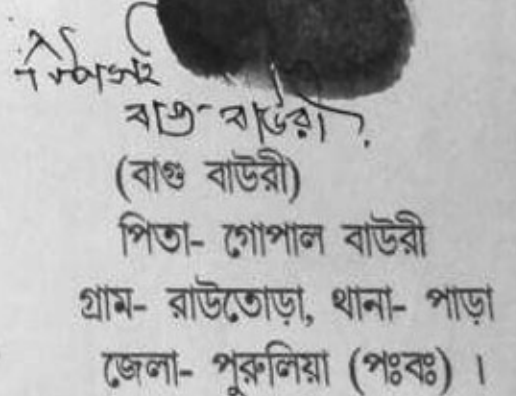 টিপসহি
বাগু বাউরী
(বাগু বাউরী)
পিতা- গোপাল বাউরী
গ্রাম- রাউতোড়া, থানা- পাড়া
জেলা- পুরুলিয়া (পঃবঃ) ।